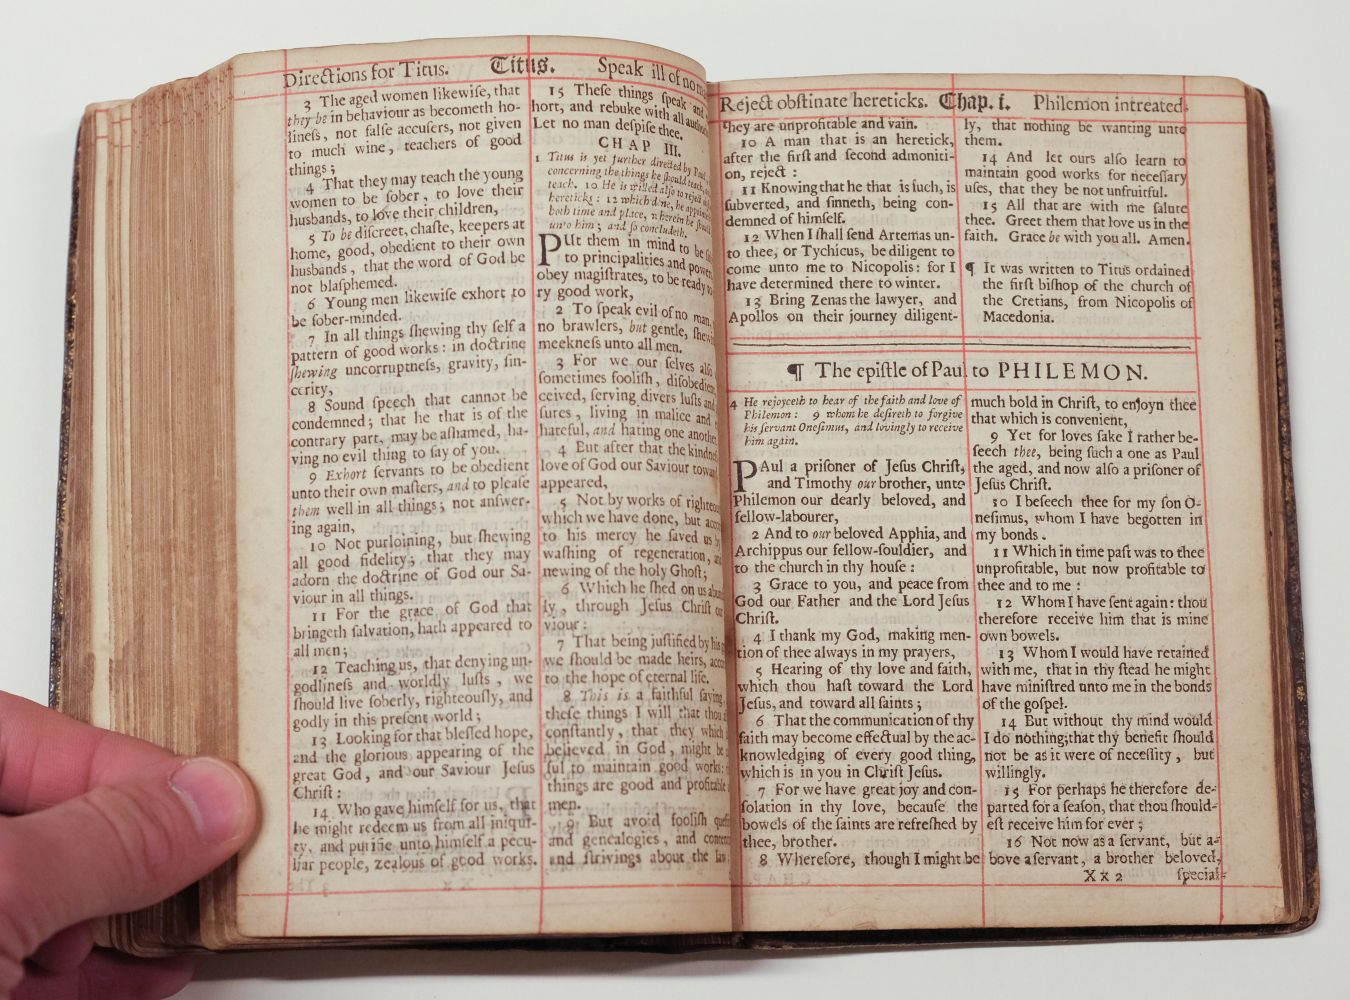 Directions for Titus. Titus. Speak ill of no
3 The aged women likewiſe, that
they be in behaviour as becometh ho-
lineſs, not falſe accuſers, not given
to much wine, teachers of good
things;
4 That they may teach the young
women to be ſober, to love their
husbands, to love their children,
5 To be diſcreet, chaſte, keepers at
home, good, obedient to their own
husbands, that the word of God be
not blaſphemed.
6 Young men likewiſe exhort to
be ſober-minded.
7 In all things ſhewing thy ſelf a
pattern of good works: in doctrine
ſhewing uncorruptneſs, gravity, ſin-
cerity,
8 Sound ſpeech that cannot be
condemned; that he that is of the
contrary part, may be aſhamed, ha-
ving no evil thing to ſay of you.
9 Exhort ſervants to be obedient
unto their own maſters, and to pleaſe
them well in all things; not anſwer-
ing again,
10 Not purloining, but ſhewing
all good fidelity; that they may
adorn the doctrine of God our Sa-
viour in all things.
11 For the grace of God that
bringeth ſalvation, hath appeared to
all men;
12 Teaching us, that denying un-
godlineſs and worldly luſts, we
ſhould live ſoberly, righteouſly, and
godly in this preſent world;
13 Looking for that bleſſed hope,
and the glorious appearing of the
great God, and our Saviour Jeſus
Chriſt:
14 Who gave himſelf for us, that
he might redeem us from all iniqui-
ty, and purifie unto himſelf a pecu-
liar people, zealous of good works.
15 Theſe things ſpeak and
hort, and rebuke with all
Let no man deſpiſe thee.
CHAP III.
1 Titus is yet further directed by Paul,
concerning the things he ſhould teach,
teach. 10 He is willed alſo to reject
hereticks: 12 which done, he
both time and place, wherein he
unto him; and ſo concludeth.
PUt them in mind to be
to principalities and
obey magiſtrates, to be ready to
ry good work,
2 To ſpeak evil of no man,
no brawlers, but gentle,
meekneſs unto all men.
3 For we our ſelves alſo
ſometimes fooliſh,
ceived, ſerving divers luſts and
ſures, living in malice and
hateful, and hating one another.
4 But after that the
love of God our Saviour
appeared,
5 Not by works of
which we have done, but
to his mercy he ſaved us by
waſhing of regeneration,
newing of the holy Ghoſt;
6 Which he ſhed on us
ly, through Jeſus Chriſt our
viour:
7 That being juſtified by his
we ſhould be made heirs,
to the hope of eternal life.
8 This is a faithful ſaying,
theſe things I will that thou
conſtantly, that they which
believed in God, might be
ful to maintain good works:
things are good and profitable
men.
9 But avoid fooliſh
and genealogies, and
and ſtrivings about the law,
Reject obſtinate hereticks. Chap. i. Philemon intreated.
they are unprofitable and vain.
10 A man that is an heretick,
after the firſt and ſecond admoniti-
on, reject:
11 Knowing that he that is ſuch, is
ſubverted, and ſinneth, being con-
demned of himſelf.
12 When I ſhall ſend Artemas un-
to thee, or Tychicus, be diligent to
come unto me to Nicopolis: for I
have determined there to winter.
13 Bring Zenas the lawyer, and
Apollos on their journey diligent-
ly, that nothing be wanting unto
them.
14 And let ours alſo learn to
maintain good works for neceſſary
uſes, that they be not unfruitful.
15 All that are with me ſalute
thee. Greet them that love us in the
faith. Grace be with you all. Amen.
¶ It was written to Titus ordained
the firſt biſhop of the church of
the Cretians, from Nicopolis of
Macedonia.
¶ The epiſtle of Paul to PHILEMON.
4 He rejoyceth to hear of the faith and love of
Philemon: 9 whom he deſireth to forgive
his ſervant Oneſimus, and lovingly to receive
him again.
PAul a priſoner of Jeſus Chriſt,
and Timothy our brother, unto
Philemon our dearly beloved, and
fellow-labourer,
2 And to our beloved Apphia, and
Archippus our fellow-ſouldier, and
to the church in thy houſe:
3 Grace to you, and peace from
God our Father and the Lord Jeſus
Chriſt.
4 I thank my God, making men-
tion of thee always in my prayers,
5 Hearing of thy love and faith,
which thou haſt toward the Lord
Jeſus, and toward all ſaints;
6 That the communication of thy
faith may become effectual by the ac-
knowledging of every good thing,
which is in you in Chriſt Jeſus.
7 For we have great joy and con-
ſolation in thy love, becauſe the
bowels of the ſaints are refreſhed by
thee, brother.
8 Wherefore, though I might be
much bold in Chriſt, to enjoyn thee
that which is convenient,
9 Yet for loves ſake I rather be-
ſeech thee, being ſuch a one as Paul
the aged, and now alſo a priſoner of
Jeſus Chriſt.
10 I beſeech thee for my ſon O-
neſimus, whom I have begotten in
my bonds.
11 Which in time paſt was to thee
unprofitable, but now profitable to
thee and to me:
12 Whom I have ſent again: thou
therefore receive him that is mine
own bowels.
13 Whom I would have retained
with me, that in thy ſtead he might
have miniſtred unto me in the bonds
of the goſpel.
14 But without thy mind would
I do nothing; that thy benefit ſhould
not be as it were of neceſſity, but
willingly.
15 For perhaps he therefore de-
parted for a ſeaſon, that thou ſhould-
eſt receive him for ever;
16 Not now as a ſervant, but a-
bove a ſervant, a brother beloved,
Xx 2 ſpecial-